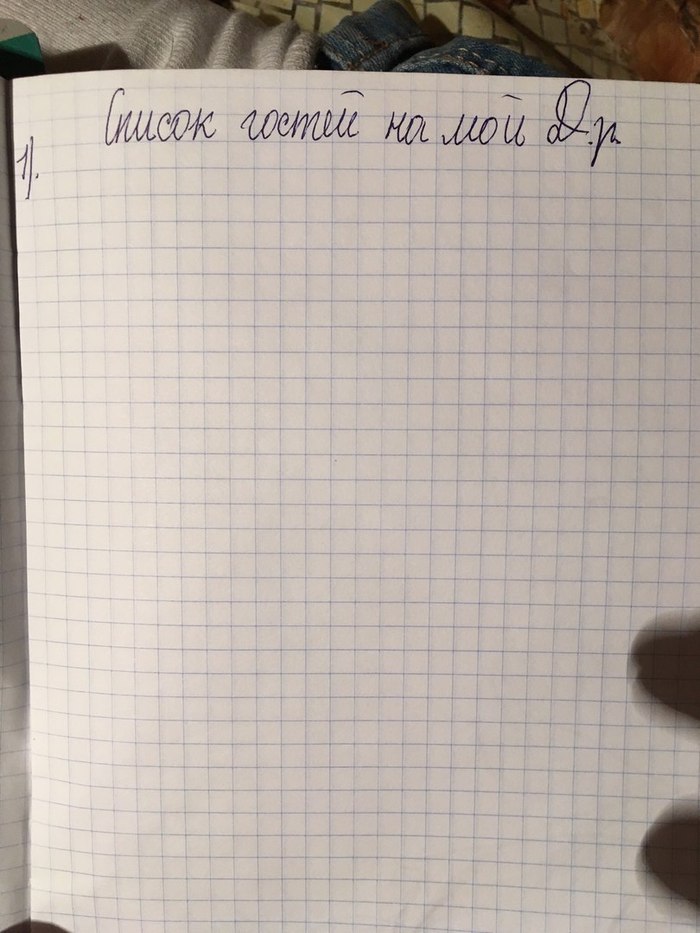 Список гостей на мой Д.р
1).